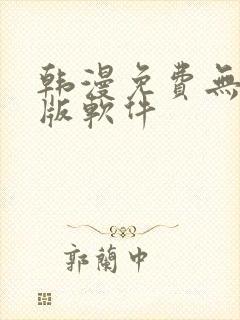 韩漫免費無
版軟件
郭蘭中